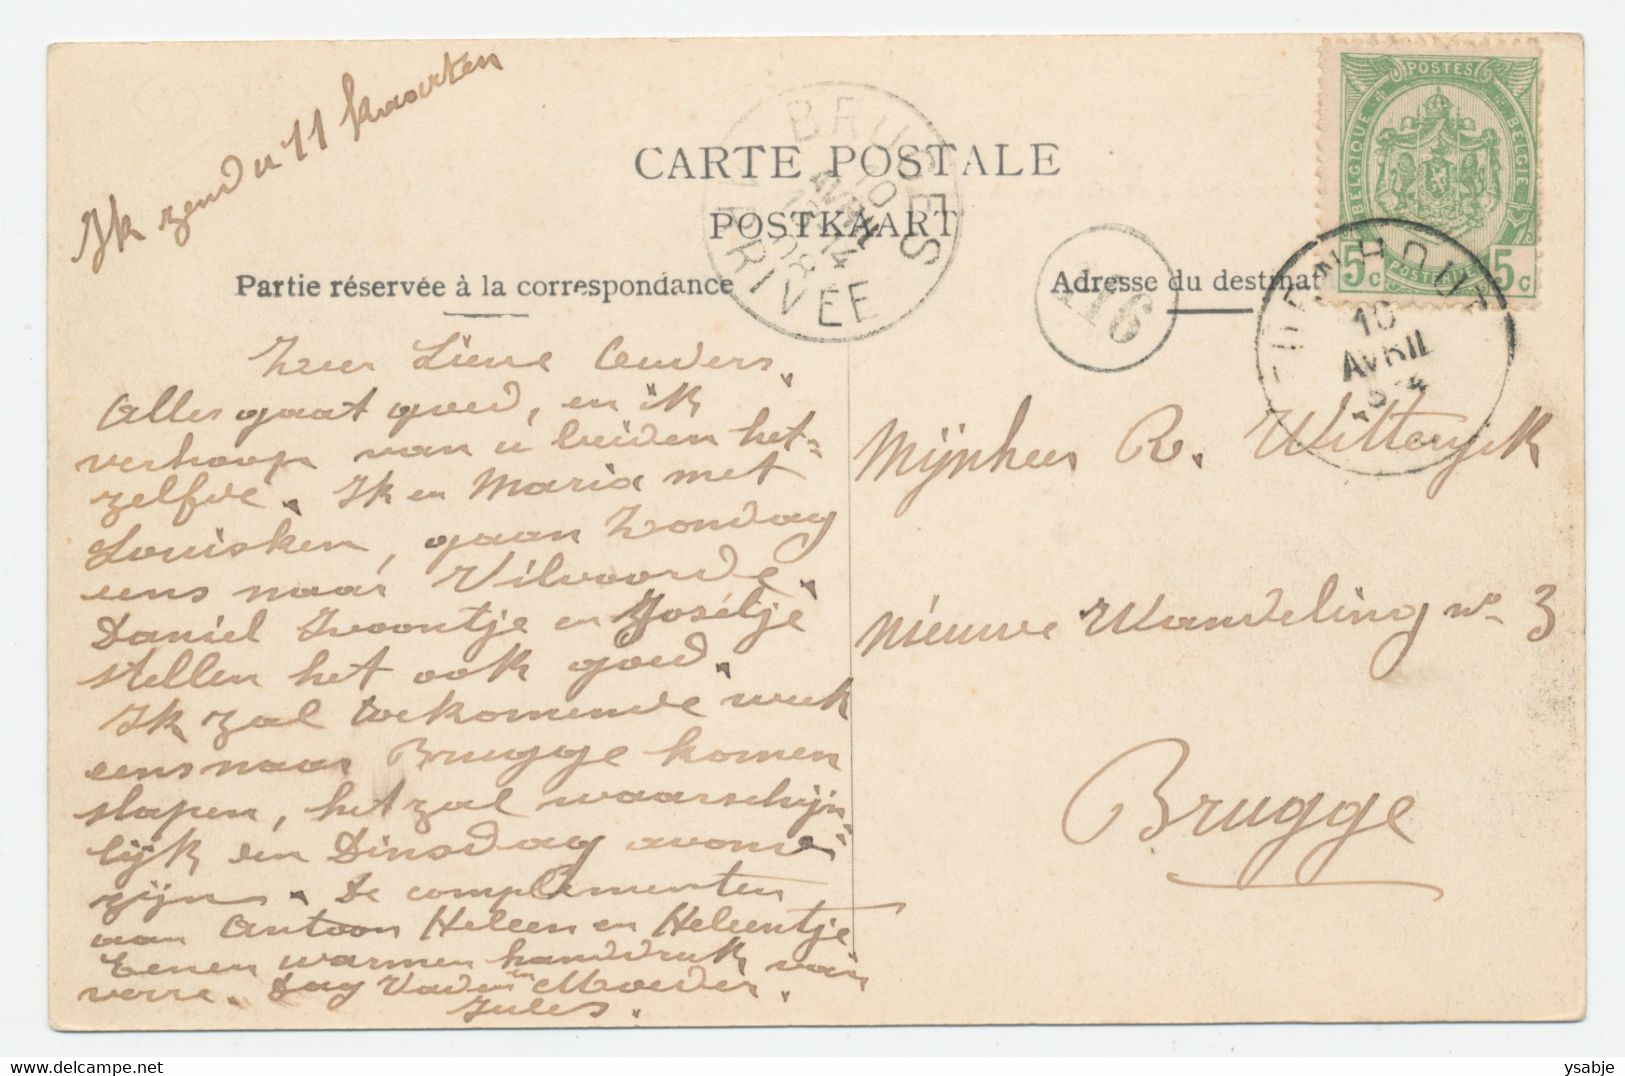 Ik zend u 11 kaarten
CARTE POSTALE
POSTKAART
Partie réservée à la correspondance
Adresse du destinat
BRUGES
10
AVRIL
14
1908
ARRIVÉE
116
POSTES
BELGIQUE
BELGIE
5c
POSTERIJEN
5c
THOUR
10
AVRIL
Zeer Lieve Ouders.
Alles gaat goed, en ik
verhoop van u beiden het=
zelfde. Ik en Maria met
Louisken, gaan Zondag
eens naar Vilvoorde.
Daniel Ivoontje en Josétje
stellen het ook goed.
Ik zal toekomende week
eens naar Brugge komen
slapen, het zal waarschijn=
lijk den Dinsdag avond
zijn. De complimenten
aan Antoon Heleen en Heleentje
Eenen warmen handdruk van
verre. Dag Vader en Moeder.
Jules.
Mijnheer R. Witteryck
Nieuwe Wandeling no 3
Brugge
ysabje